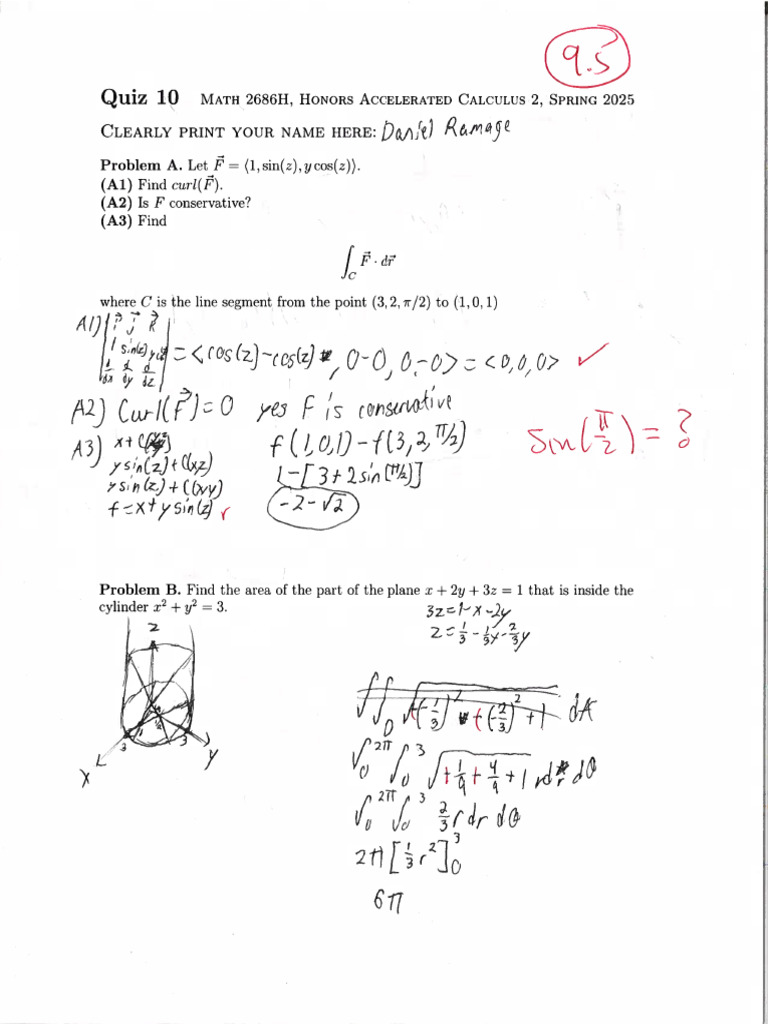 9.5
Quiz 10 MATH 2686H, HONORS ACCELERATED CALCULUS 2, SPRING 2025
CLEARLY PRINT YOUR NAME HERE: Daniel Ramage
Problem A. Let F⃗ = ⟨1, sin(z), y cos(z)⟩.
(A1) Find curl(F⃗).
(A2) Is F conservative?
(A3) Find
∫_C F⃗ · dr⃗
where C is the line segment from the point (3, 2, π/2) to (1, 0, 1)
A1) | i⃗ j⃗ k⃗ |
| 1 sin(z) |
| d/dx d/dy d/dz | = <cos(z)-cos(z), 0-0, 0-0> = <0,0,0> ✓
A2) Curl(F⃗)=0 yes F is conservative
A3) x+C
ysin(z)+C(x,z)
ysin(z)+C(x,y)
f=x+ysin(z)
f(1,0,1)-f(3,2,π/2)
1-[3+2sin(π/2)]
-2-√2
sin(π/2)=?
Problem B. Find the area of the part of the plane x + 2y + 3z = 1 that is inside the
cylinder x² + y² = 3.
3z=1-x-2y
z=1/3-1/3x-2/3y
z
3
3
x
y
∫∫_D √((-1/3)²+(-2/3)²+1) dA
∫_0^2π ∫_0^3 √(+1/9+4/9+1) r dr dθ
∫_0^2π ∫_0^3 2/3 r dr dθ
2π[1/3 r²]_0^3
6π